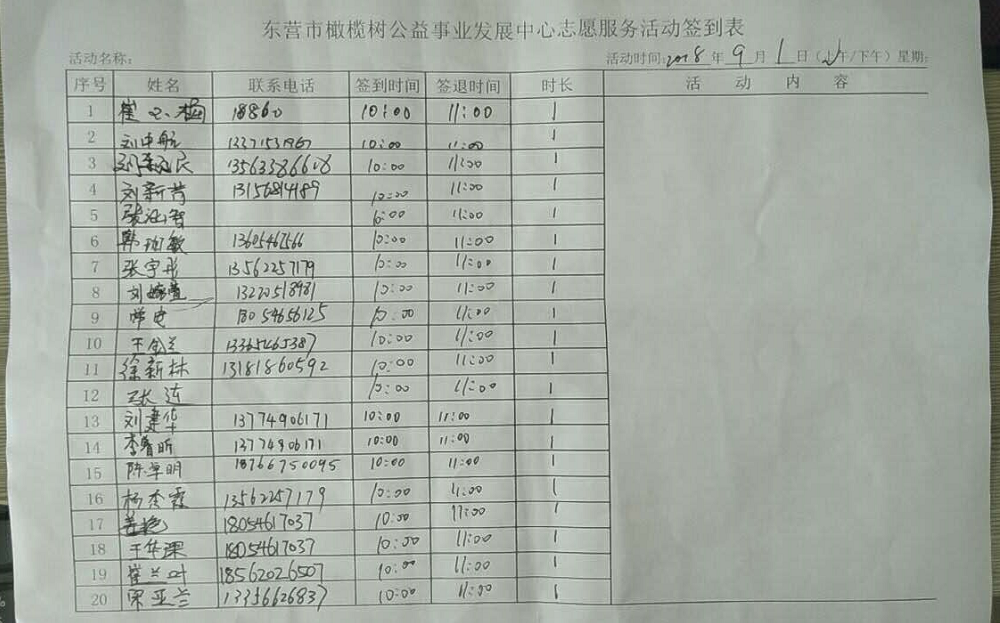 东营市橄榄树公益事业发展中心志愿服务活动签到表
活动名称: 活动时间:2018年9月1日(上午/下午)星期:
序号 姓名 联系电话 签到时间 签退时间 时长 活动内容
1 崔 梅 18860 10:00 11:00 1
2 刘中航 10:00 11:00 1
3 民 13563386608 10:00 11:00 1
4 刘新 13156814189 10:00 11:00 1
5 张 10:00 11:00 1
6 韩 敏 13605467566 10:00 11:00 1
7 张宇彤 13562257179 10:00 11:00 1
8 刘 13220518981 10:00 11:00 1
9 18054656125 10:00 11:00 1
10 王金兰 13365465387 10:00 11:00 1
11 徐新林 13181860592 10:00 11:00 1
12 张连 10:00 11:00 1
13 刘建华 13774906171 10:00 11:00 1
14 李 昕 13774906171 10:00 11:00 1
15 陈 明 18766750095 10:00 11:00 1
16 杨秀霞 13562257179 10:00 11:00 1
17 姜艳 18054617037 10:00 11:00 1
18 王 18054617037 10:00 11:00 1
19 崔兰叶 18562026507 10:00 11:00 1
20 宋亚兰 13356626837 10:00 11:00 1